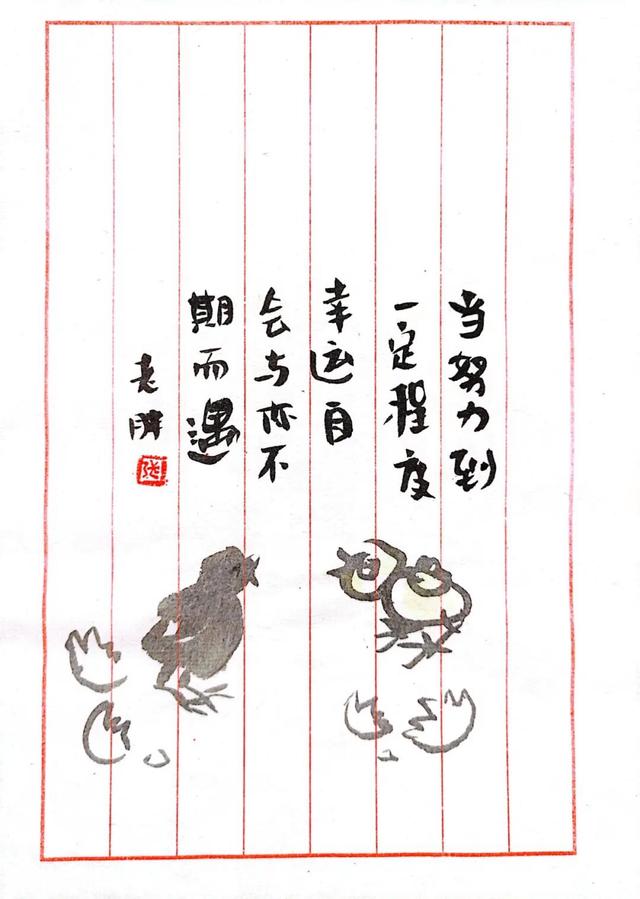 当努力到
一定程度
幸运自
会与你不
期而遇
老胖